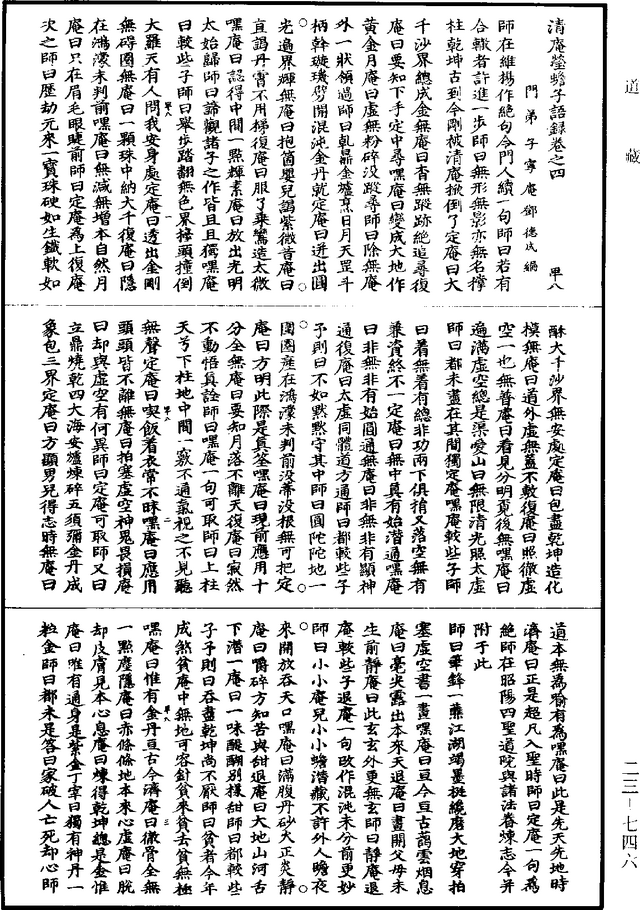 道藏
清庵瑩蟾子語録卷之四
門弟子寧庵鄧德成編
甲八
師在維揚作絕句令門人續一句師曰若有
合轍者許進一步師曰無形無影亦無名撑
柱乾坤古到今剛被清庵掀倒了定庵曰大
千沙界總成金無庵曰杳無蹤跡絶追尋復
庵曰要知下手定中尋嘿庵曰變成大地作
黄金月庵曰虛無粉碎没蹤尋師曰除無庵
外一狀領過師曰乹鼎金爐烹日月天罡斗
柄幹璇璣劈開混沌金丹就定庵曰迸出圓
光遍界輝無庵曰抱箇嬰兒謁紫微昔庵曰
直謁丹霄不用梯復庵曰服了乘鸞造太微
嘿庵曰認得中間一點輝素庵曰放出光明
太始歸師曰諦觀諸子之作皆且且獨嘿庵
曰較些子師曰舉步踏翻無色界掭頭撞倒
大羅天有人問我安身處定庵曰透出金剛
無碍圈無庵曰一顆珠中納大千復庵曰隱
在鴻濛未判前嘿庵曰無減無增本自然月
庵曰只在眉毛眼睫前師曰定庵為上復庵
次之師曰歷劫元來一寳珠硬如生鐵軟如
酥大千沙界無安處定庵曰包盡乾坤造化
模無庵曰道外虛無蓋不敷復庵曰照徹虛
空一也無普庵曰看見分明覓後無嘿庵曰
遍滿虛空總是渠愛山曰無限清光照太虛
師曰都未盡在其間獨定庵嘿庵較些子師
曰着無着有總非功兩下俱捐又落空無有
兼資終不一定庵曰無中真有始潛通嘿庵
曰非無非有始圓通無庵曰非無非有顯神
通復庵曰太虛同體道方通師曰都較些子
予則曰不如黙黙守其中師曰圓陀陀地一
團圞產在鴻濛未判前没蒂没根無可把定
庵曰方明此際是真荃嘿庵曰現前應用十
分全無庵曰要知月落不離天復庵曰寂然
不動悟真詮師曰嘿庵一句可取師曰上柱
天兮下柱地中間一竅不通氣視之不見聽
無聲定庵曰喫飯着衣常不昧嘿庵曰應用
頭頭皆不離無庵曰拍塞虛空神鬼畏損庵
曰却與虛空有何異師曰定庵可取師又曰
立鼎燒乾四大海安爐煉碎五須彌金丹成
象包三界定庵曰方顯男兒得志時無庵曰
道本無為喻有為嘿庵曰此是先天先地時
濟庵曰正是超凡入聖時師曰定庵一句為
絶師在昭陽四聖道院與諸法眷煉志令并
附于此
師曰筆鋒一蘸江湖竭墨挺纔磨大地穿拍
塞虛空書一畫嘿庵曰亘今亘古鶴雲烟息
庵曰毫尖露出本來天退庵曰畫開父母未
生前靜庵曰此玄玄外更無玄師曰靜庵退
庵較些子退庵一句改作混沌未分前更妙
師曰小小庵兒小小瞻潛藏不許外人瞻夜
來開放吞天口嘿庵曰滿腹丹砂大正炎靜
庵曰爵碎方知苦與甜退庵曰大地山河舌
下潛一庵曰一味醍醐别樣甜師曰都較些
子予則曰吞盡乾坤尚不厭師曰貧者今年
成煞貧庵中無地可容針貧來貧去貧無極
嘿庵曰惟有金丹亘古今濟庵曰徹骨全無
一點塵隱庵曰赤條條地本來心虛庵曰脱
却皮膚見本心息庵曰煉得乾坤總是金惟
庵曰唯有通身是紫金丁字曰獨有神丹一
粒金師曰都未是答曰家破人亡死却心師
二三－七四六